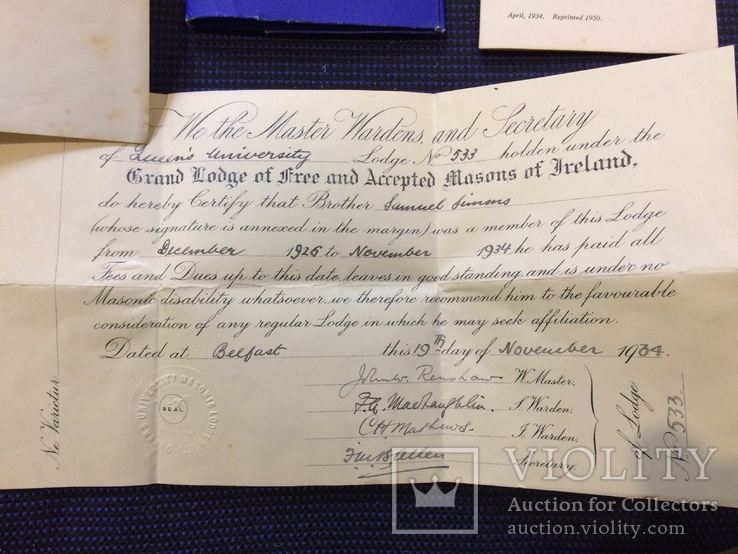 April, 1934. Reprinted 1950.
We the Master Wardens, and Secretary
of Queen's University Lodge No 533 holden under the
Grand Lodge of Free and Accepted Masons of Ireland.
do hereby Certify that Brother Samuel Simms
(whose signature is annexed in the margin) was a member of this Lodge
from December 1926 to November 1934 he has paid all
Fees and Dues up to this date, leaves in good standing, and is under no
Masonic disability whatsoever, we therefore recommend him to the favourable
consideration of any regular Lodge in which he may seek affiliation.
Dated at Belfast this 19th day of November 1934.
John W. Renshaw W. Master.
MacLaughlin. S. Warden.
C H Mathews. J. Warden.
Secretary.
of Lodge
No 533
Ne Varietur
SEAL
VIOLITY
Auction for Collectors
auction.violity.com